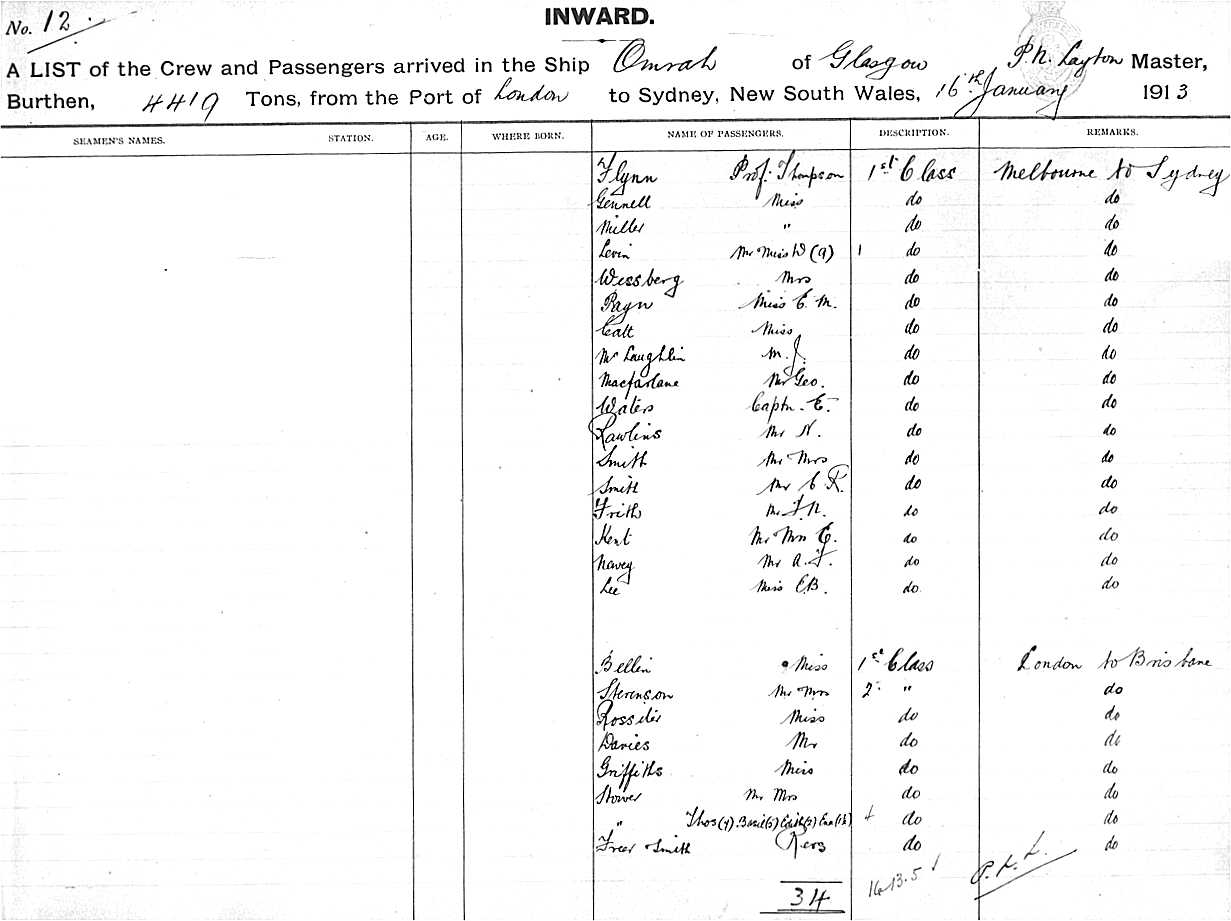 No. 12
INWARD.
A LIST of the Crew and Passengers arrived in the Ship Omrah of Glasgow P.N. Layton Master,
Burthen, 4419 Tons, from the Port of London to Sydney, New South Wales, 16th January 1913
SEAMEN'S NAMES. STATION. AGE. WHERE BORN. NAME OF PASSENGERS. DESCRIPTION. REMARKS.
Flynn Prof. Thompson 1st Class Melbourne to Sydney
Gennell Miss do do
Miller " do do
Levin Mr Miss W (9) 1 do do
Wessberg Mrs do do
Payn Miss E. M. do do
Catt Miss do do
McLaughlin M. J. do do
Macfarlane Mr Geo. do do
Waters Captn. E. do do
Rawlins Mr N. do do
Smith Mr Mrs do do
Smith Mr C R. do do
Frith Mr F. N. do do
Kent Mr Mrs E. do do
Navey Mr A. F. do do
Lee Miss E.B. do do
Bellin Miss 1st Class London to Brisbane
Stevenson Mr Mrs 2 " do
Rossiter Miss do do
Davies Mr do do
Griffiths Miss do do
Stower Mr Mrs do do
" Thos (9) Basil (5) Edith (3) do do
Freer Smith Revs do do
34